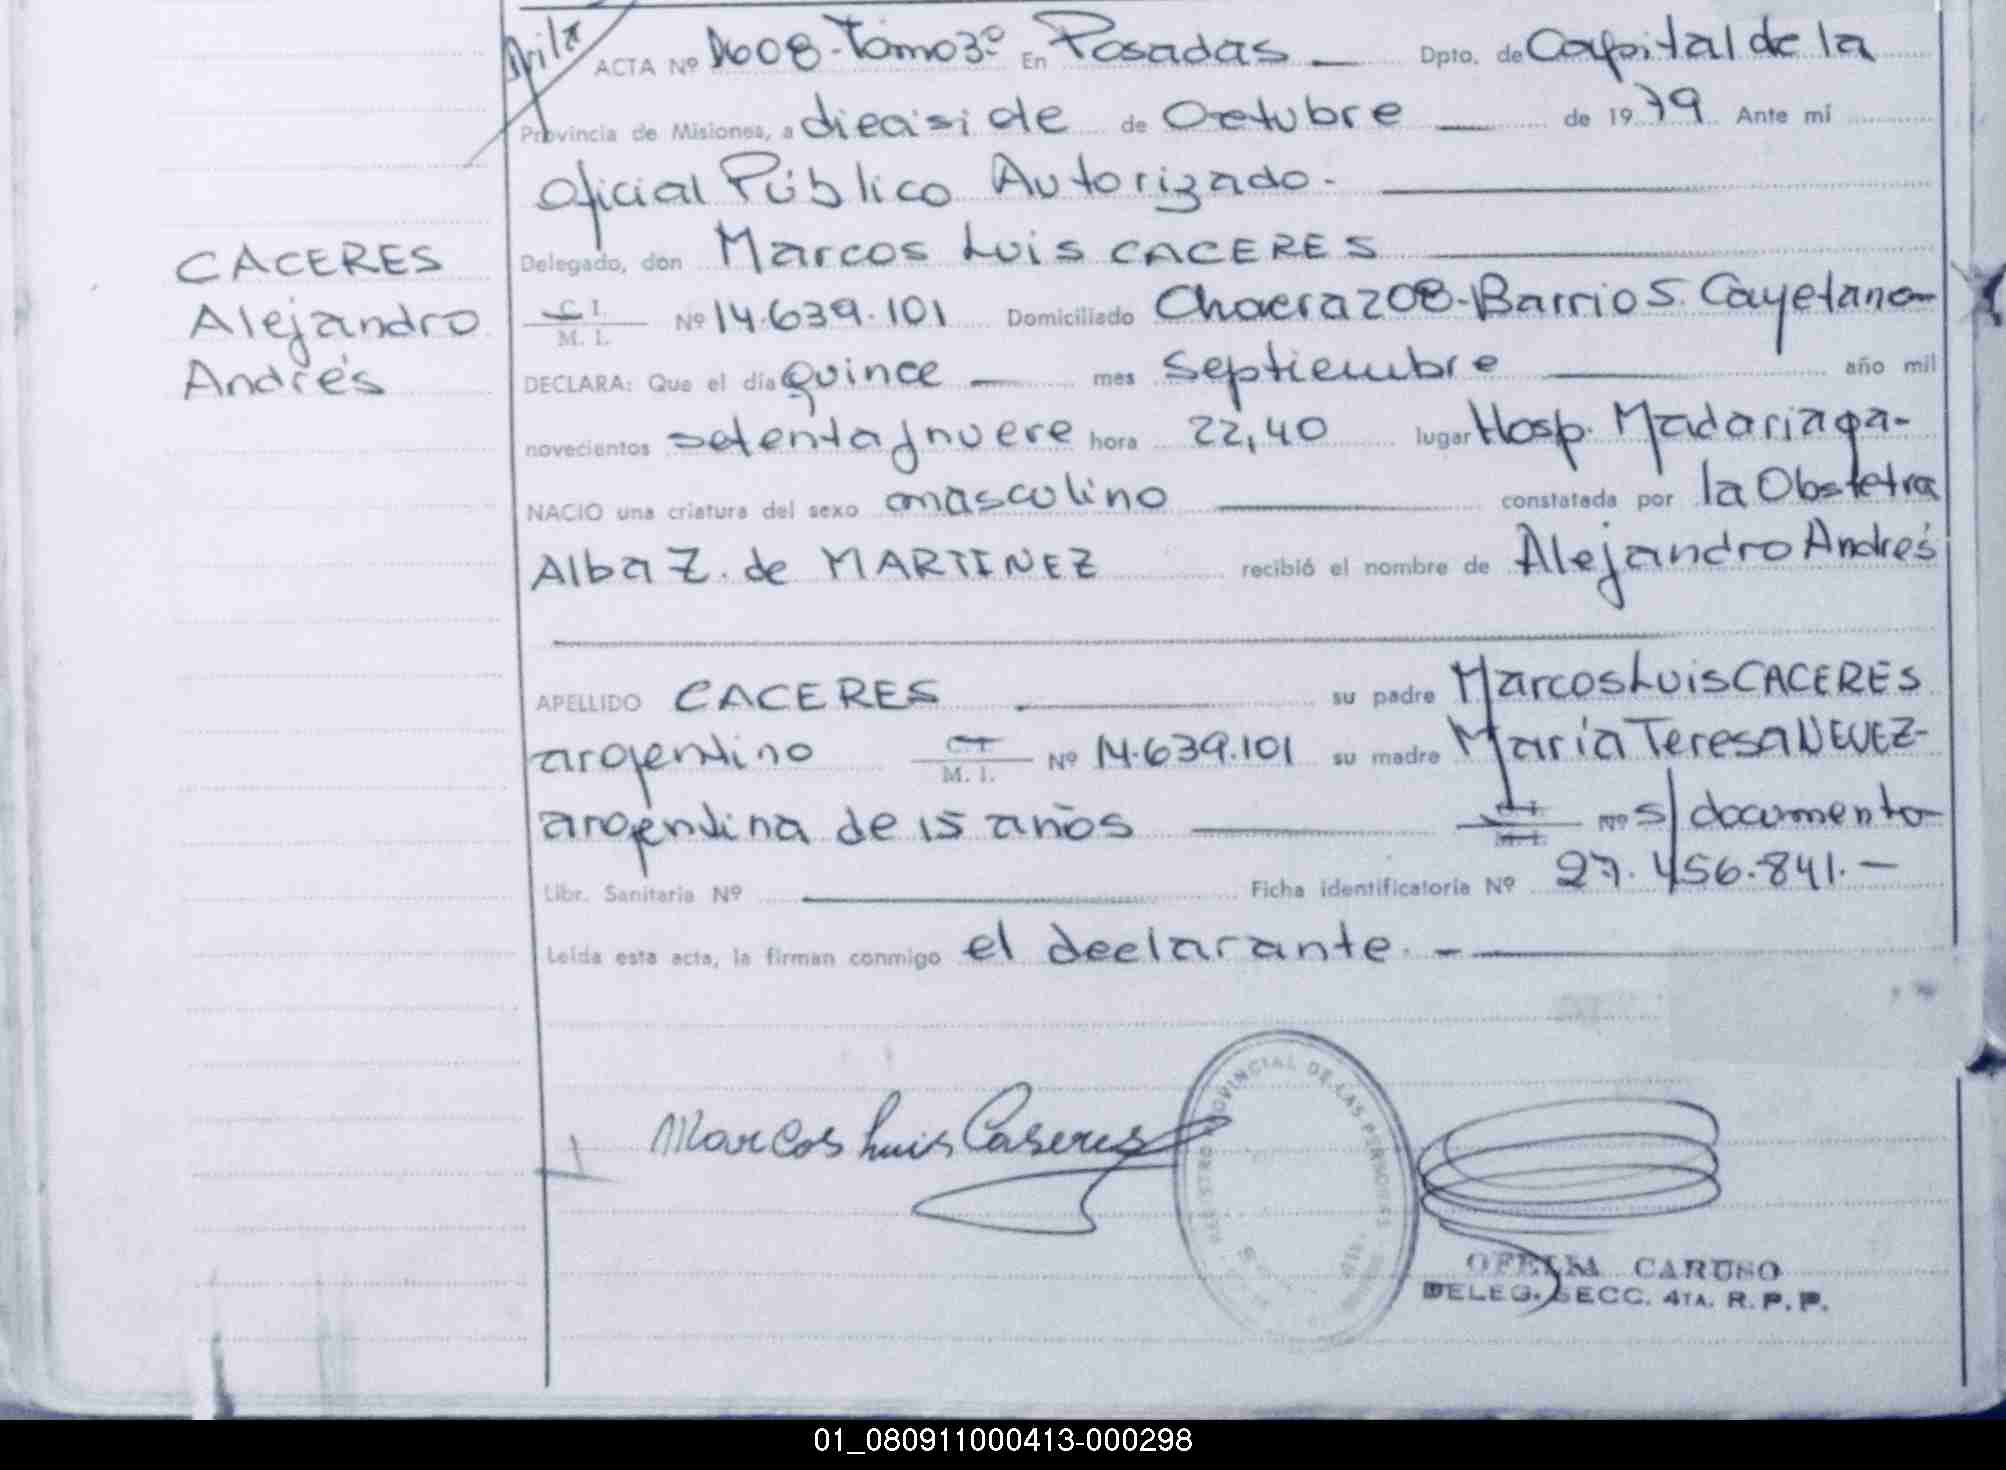 ACTA Nº 1608-Tomo 3º En Posadas — Dpto. de Capital de la
Provincia de Misiones, a dieasi de de Octubre — de 1979 Ante mí
Oficial Público Autorizado.-
CACERES
Alejandro
Andrés
Delegado, don Marcos Luis CACERES
C. I. / M. I. Nº 14.639.101 Domiciliado Chacra 208-Barrio S. Cayetano-
DECLARA: Que el día quince — mes Septiembre — año mil
novecientos setenta y nueve hora 22,40 lugar Hosp. Madariaga-
NACIO una criatura del sexo masculino — constatada por la Obstetra
Alba Z. de MARTINEZ recibió el nombre de Alejandro Andrés
APELLIDO CACERES — su padre Marcos Luis CACERES
argentino C. I. / M. I. Nº 14.639.101 su madre María Teresa NEVEZ-
argentina de 15 años — Nº s/documento-
Libr. Sanitaria Nº — Ficha identificatoria Nº 27.456.841.-
Leída esta acta, la firman conmigo el declarante.-
Marcos Luis Caseres
PROVINCIAL DE LAS PERSONAS
OFELIA CARUSO
DELEG. SECC. 4TA. R. P. P.
01_080911000413-000298